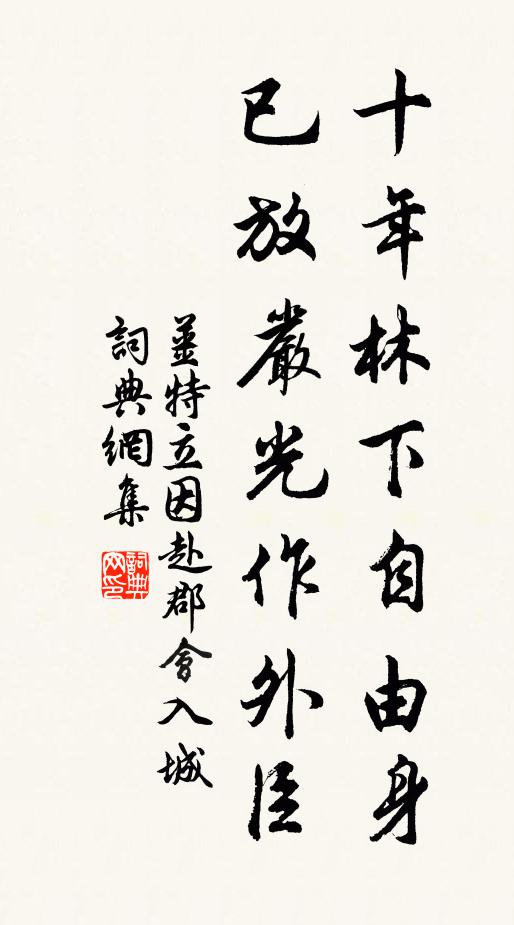 十年林下自由身
已放嚴光作外臣
薑特立因赴郡會入城
詞典網集
詞典網印